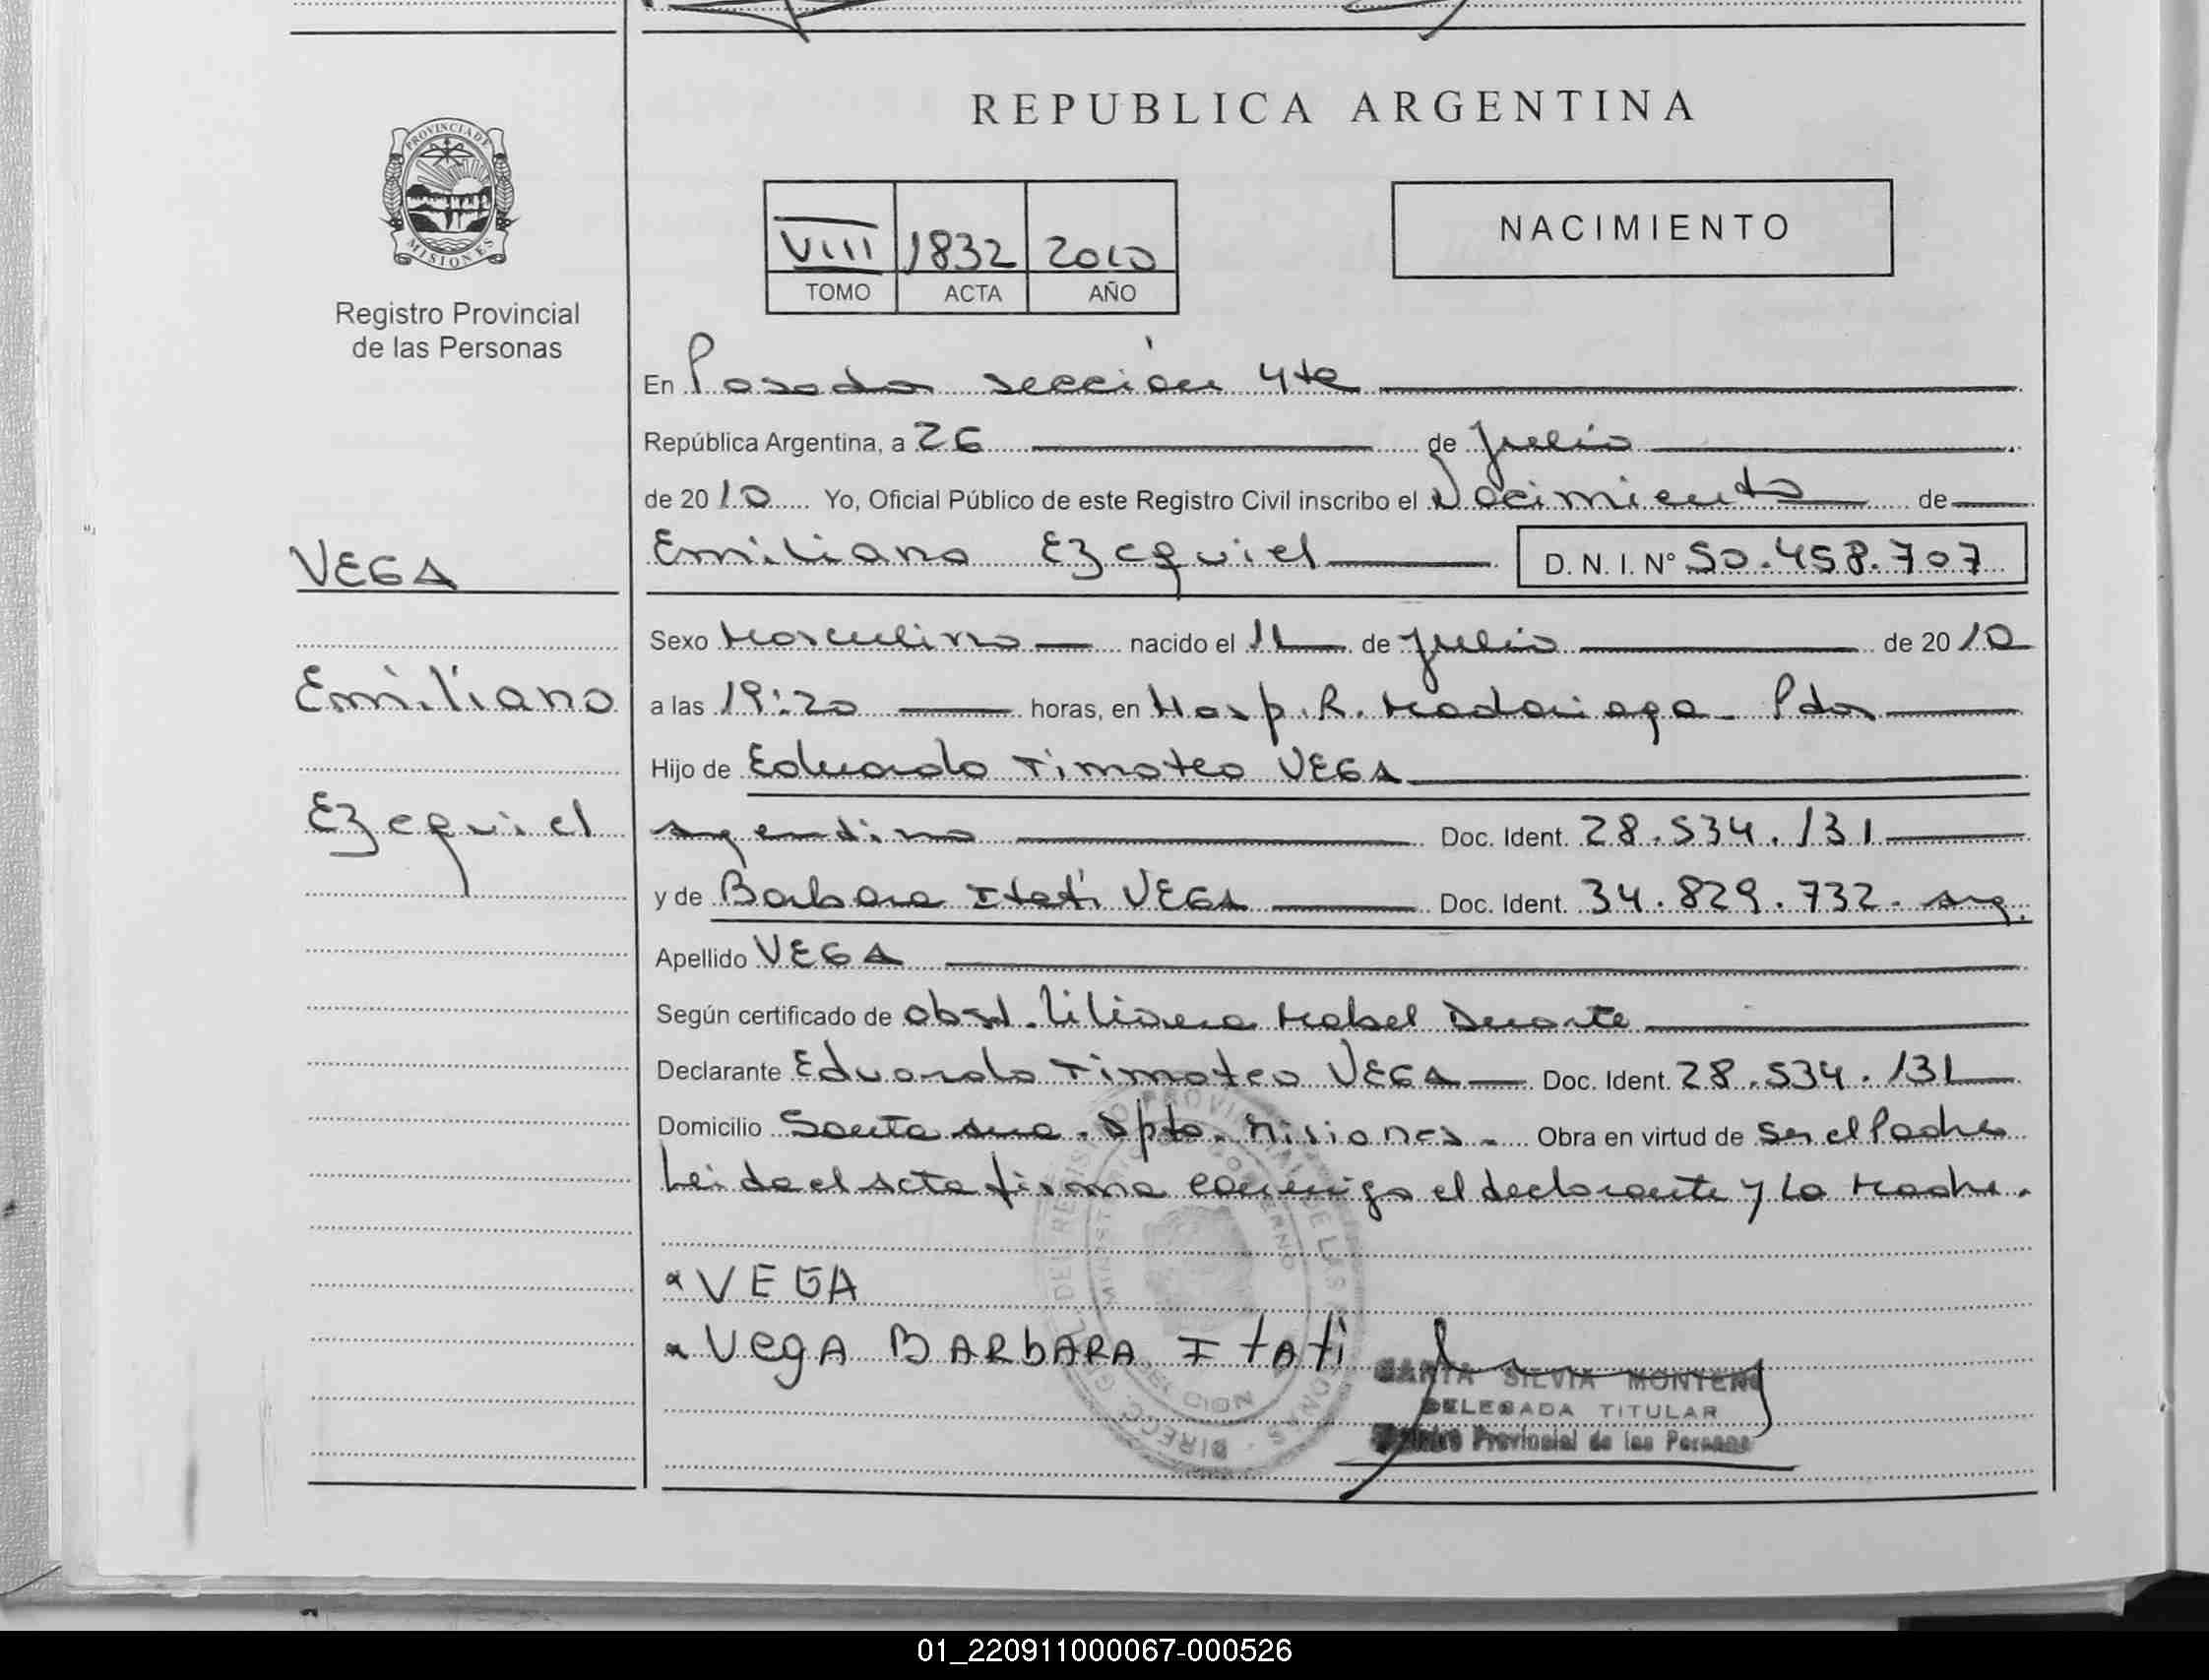 REPUBLICA ARGENTINA
PROVINCIA DE
MISIONES
Registro Provincial
de las Personas
VIII 1832 2010
TOMO ACTA AÑO
NACIMIENTO
En Posadas sección 4ta
República Argentina, a 26 de Julio
de 2010 Yo, Oficial Público de este Registro Civil inscribo el Nacimiento de
VEGA
Emiliano Ezequiel D. N. I. Nº 50.458.707
Sexo Masculino nacido el 11 de Julio de 2010
Emiliano
a las 19:20 horas, en Hosp. R. Madariaga - Pdas
Hijo de Eduardo Timoteo VEGA
Ezequiel
Argentino Doc. Ident. 28.534.131
y de Barbara Itati VEGA Doc. Ident. 34.829.732. Arg.
Apellido VEGA
Según certificado de Obst. Liliana Mabel Duarte
Declarante Eduardo Timoteo VEGA Doc. Ident. 28.534.131
Domicilio Santa Ana. Dpto. Misiones - Obra en virtud de ser el Padre
Leida el Acta firma conmigo el declarante y la Madre.
VEGA
VegA BARbARA ItAti
SILVIA MONTENE
DELEGADA TITULAR
Provincial de las Personas
01_220911000067-000526